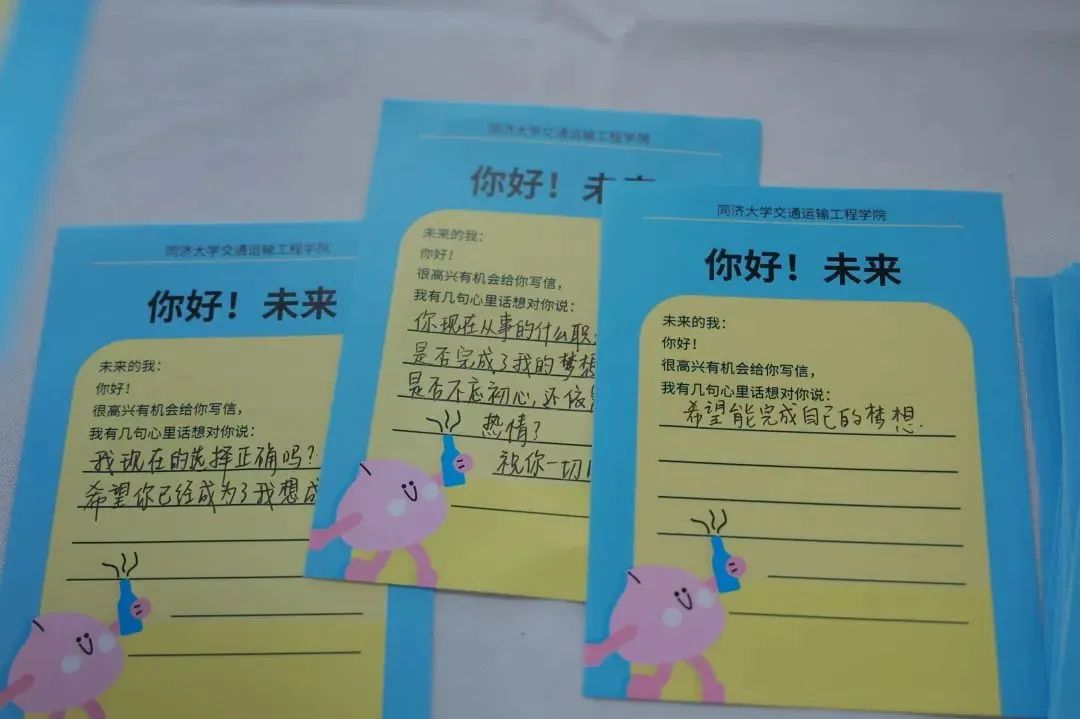 同济大学交通运输工程学院
你好！未来
未来的我：
你好！
很高兴有机会给你写信，
我有几句心里话想对你说：
我现在的选择正确吗？
希望你已经成为了我想成
同济大学交通运输工程学院
你好！未
未来的我：
你好！
很高兴有机会给你写信，
我有几句心里话想对你说：
你现在从事的什么职
是否完成了我的梦想
是否不忘初心，还依
热情了
祝你一切
同济大学交通运输工程学院
你好！未来
未来的我：
你好！
很高兴有机会给你写信，
我有几句心里话想对你说：
希望能完成自己的梦想.